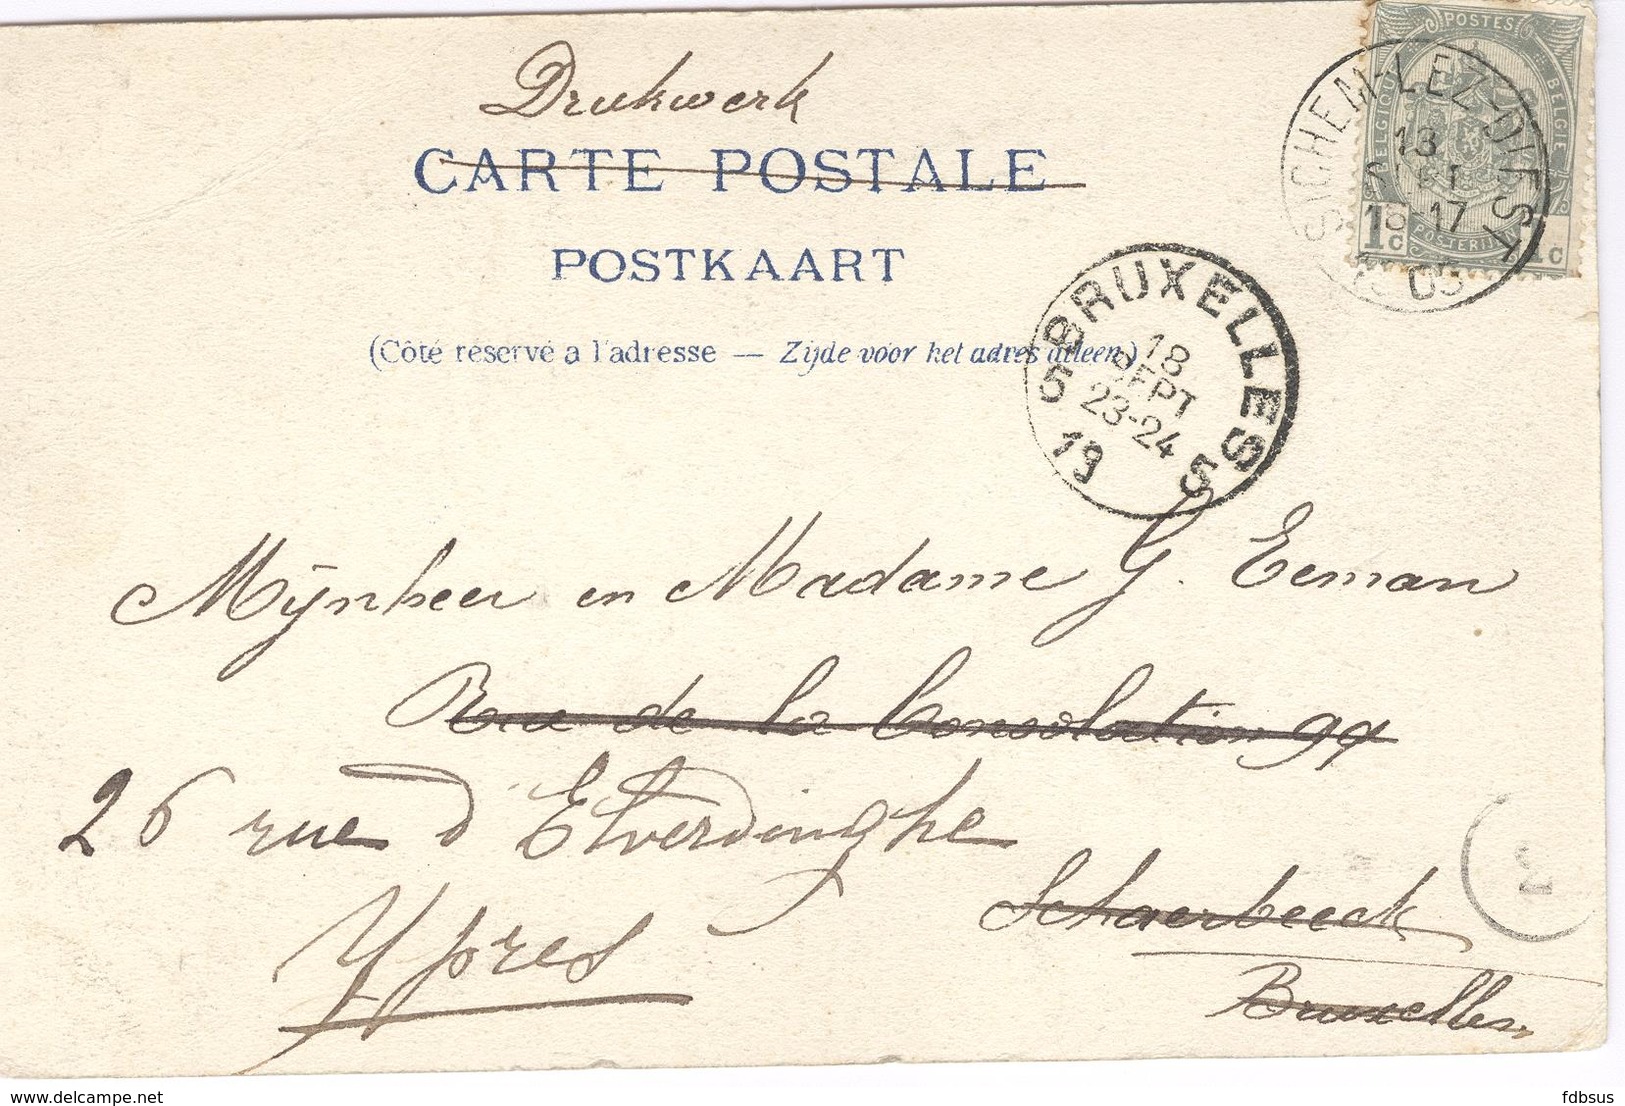 Drukwerk
CARTE POSTALE
POSTKAART
(Côté réservé a l'adresse — Zijde voor het adres alleen)
POSTES
BELGIQUE
BELGIE
POSTERIJEN
1c
1c
SICHEM-LEZ-DIEST
18
SEPT
16-17
1905
BRUXELLES
5
18
SEPT
23-24
19 5
Mijnheer en Madame G. Eeman
Rue de la Consolation 99
26 rue d'Elverdinghe
Schaerbeeck
Ypres
Bruxelles
delcampe.net
fdbsus